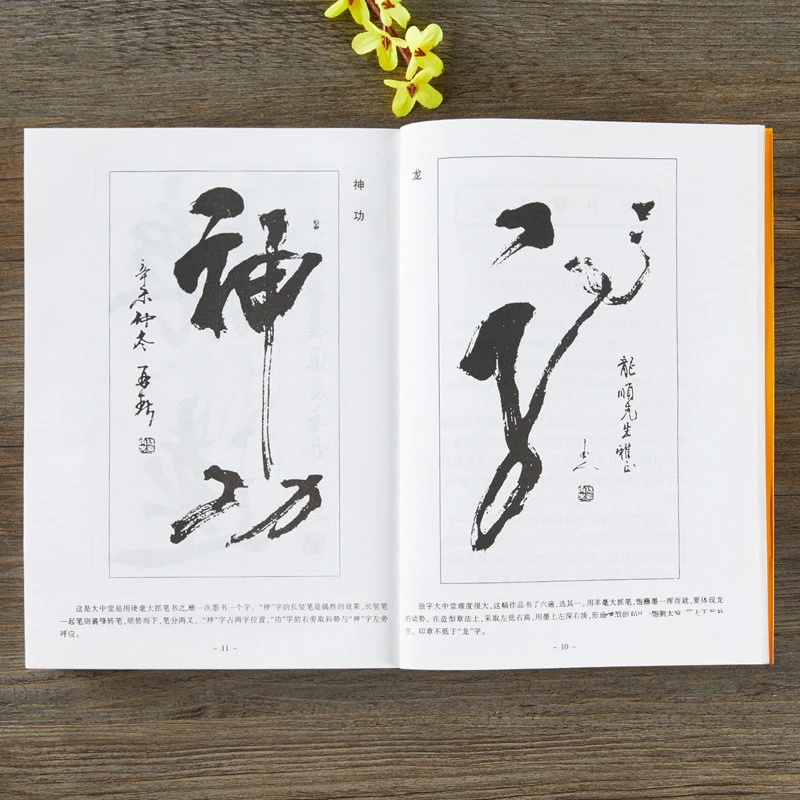 神功
神功
辛未仲冬
这是大中堂是用硬毫大抓笔书之,蘸一次墨书一个字。“神”字的长竖笔是偶然的效果,长竖笔
一起笔则裹锋转笔,顺势而下,笔分两叉。“神”字占两字位置,“功”字的右旁取斜势与“神”字左旁
呼应。
- 11 -
龙
龙
龍順先生雅正
独字大中堂难度很大,这幅作品书了六遍,选其一。用羊毫大抓笔,饱蘸墨一挥而就,要体现龙
的动势。在造型章法上,采取左低右高,用墨上左深右淡,形成
型的
里。印章不低于“龙”字。
- 10 -